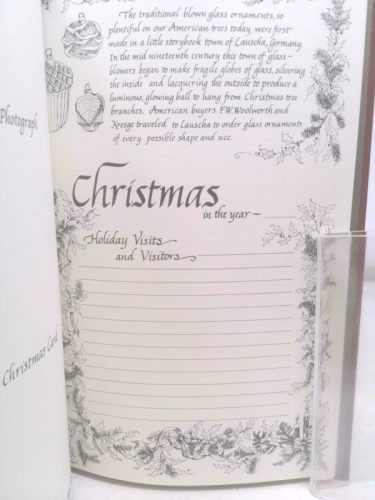 The traditional blown glass ornaments, so
plentiful on our American trees today, were first
made in a little storybook town of Lauscha, Germany.
In the mid nineteenth century this town of glass-
blowers began to make fragile globes of glass, silvering
the inside and lacquering the outside to produce a
luminous, glowing ball to hang from Christmas tree
branches. American buyers F.W. Woolworth and
Kresge traveled to Lauscha to order glass ornaments
of every possible shape and size.
Photograph
Christmas
in the year ~
Holiday Visits
and Visitors
Christmas Card